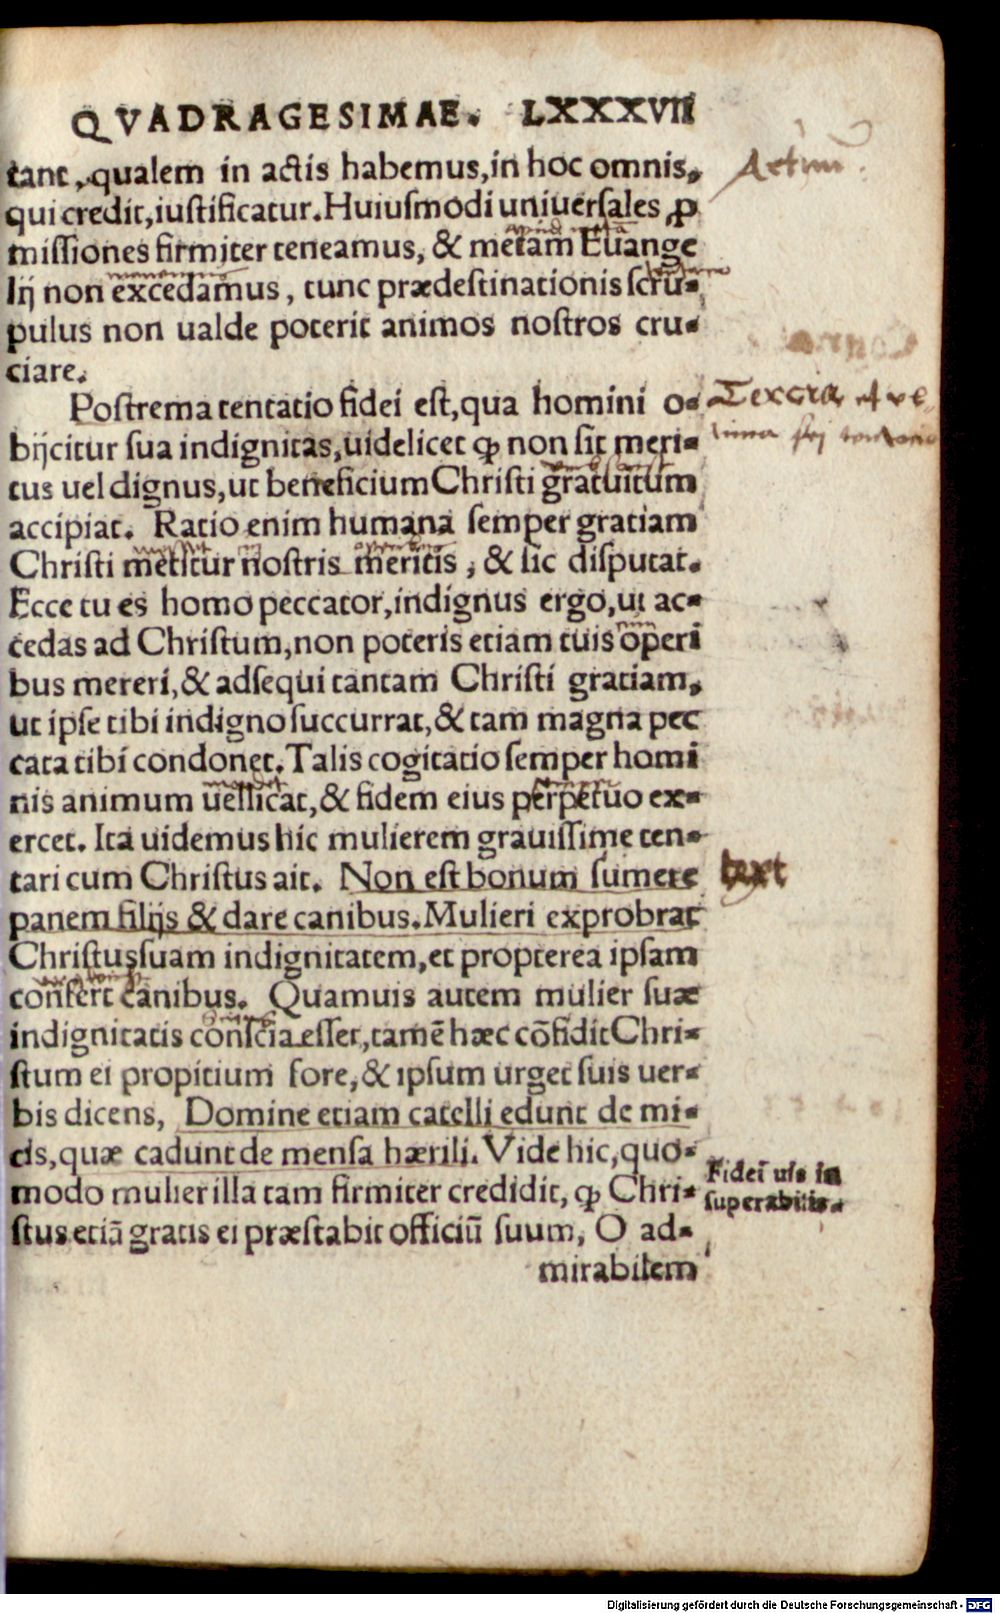 QVADRAGESIMAE. LXXXVII
tant, qualem in actis habemus, in hoc omnis,
qui credit, iustificatur. Huiusmodi uniuersales ꝓ
missiones firmiter teneamus, & metam Euange
lij non excedamus, tunc prædestinationis scru-
pulus non ualde poterit animos nostros cru-
ciare.
Postrema tentatio fidei est, qua homini o-
bijcitur sua indignitas, uidelicet ꝙ non sit meri-
tus uel dignus, ut beneficium Christi gratuitum
accipiat. Ratio enim humana semper gratiam
Christi metitur nostris meritis, & sic disputat.
Ecce tu es homo peccator, indignus ergo, ut ac-
cedas ad Christum, non poteris etiam tuis operi
bus mereri, & adsequi tantam Christi gratiam,
ut ipse tibi indigno succurrat, & tam magna pec
cata tibi condonet. Talis cogitatio semper homi
nis animum uellicat, & fidem eius perpetuo ex-
ercet. Ita uidemus hic mulierem grauissime ten-
tari cum Christus ait. Non est bonum sumere
text
panem filijs & dare canibus. Mulieri exprobrat
Christus suam indignitatem, et propterea ipsam
confert canibus. Quamuis autem mulier suæ
indignitatis conscia esset, tamē hæc cōfidit Chri-
stum ei propitium fore, & ipsum urget suis uer-
bis dicens, Domine etiam catelli edunt de mi-
cis, quæ cadunt de mensa hærili. Vide hic, quo-
modo mulier illa tam firmiter credidit, ꝙ Chri-
stus etiā gratis ei præstabit officiū suum, O ad-
mirabilem
Fidei uis in
superabilis.
Digitalisierung gefördert durch die Deutsche Forschungsgemeinschaft - DFG